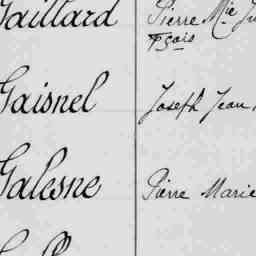 Gaillard Pierre Mie
fçois
Gaisnel Joseph Jean
Galesne Pierre Marie